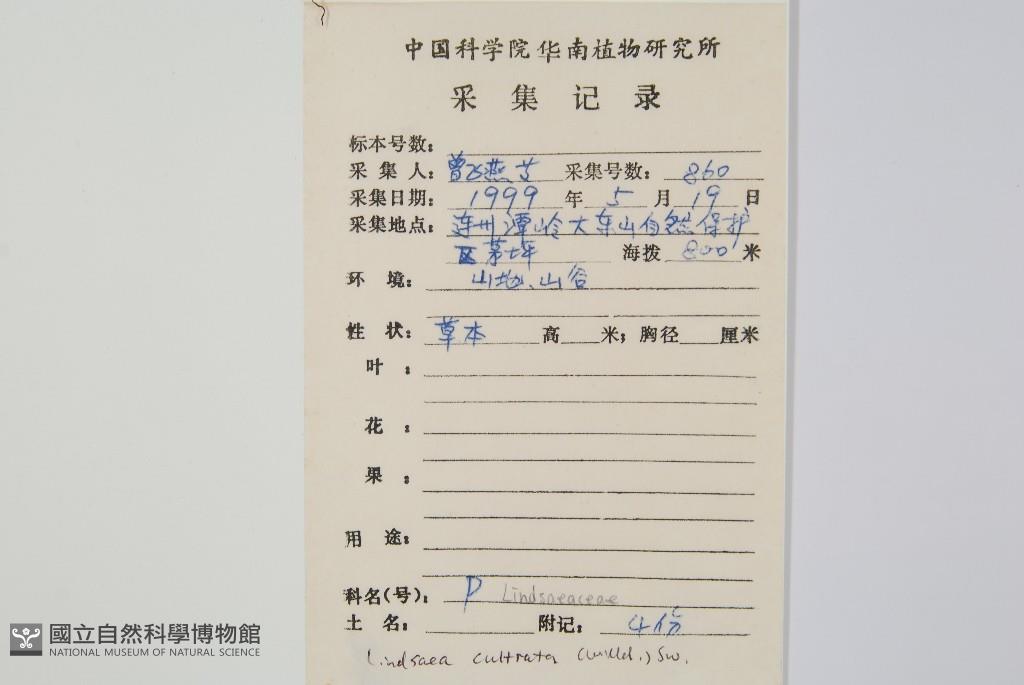 中国科学院华南植物研究所
采集记录
标本号数:
采集人: 曾 燕 采集号数: 860
采集日期: 1999 年 5 月 19 日
采集地点: 连州潭岭大东山自然保护
区茅坪 海拨 800 米
环境: 山地、山谷
性状: 草本 高 米; 胸径 厘米
叶:
花:
果:
用途:
科名(号): P Lindsaeaceae
土名: 附记: 4份
Lindsaea cultrata (Willd.) Sw.
國立自然科學博物館
NATIONAL MUSEUM OF NATURAL SCIENCE